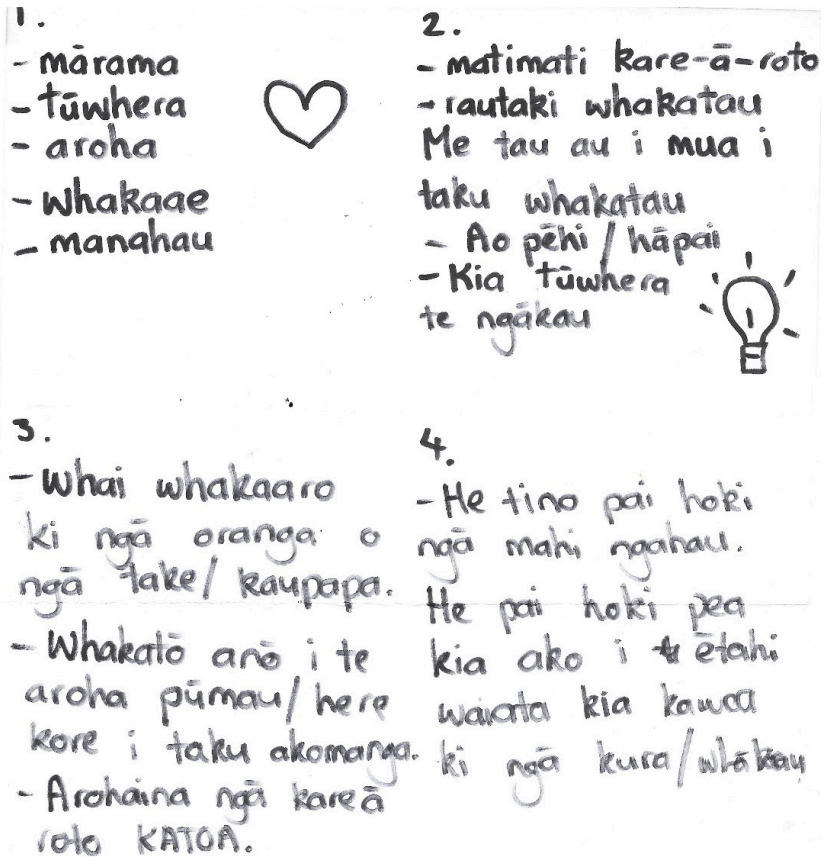 1.
- mārama
- tūwhera
- aroha
- whakaae
- manahau
2.
- matimati kare-ā-roto
- rautaki whakatau
Me tau au i mua i
taku whakatau
- Ao pēhi / hāpai
- Kia tūwhera
te ngākau
3.
- Whai whakaaro
ki ngā oranga o
ngā take/ kaupapa.
- Whakatō anō i te
aroha pūmau/ here
kore i taku akomanga.
- Arohaina ngā kare ā
roto KATOA.
4.
- He tino pai hoki
ngā mahi ngahau.
He pai hoki pea
kia ako i ētahi
waiata kia kawea
ki ngā kura/